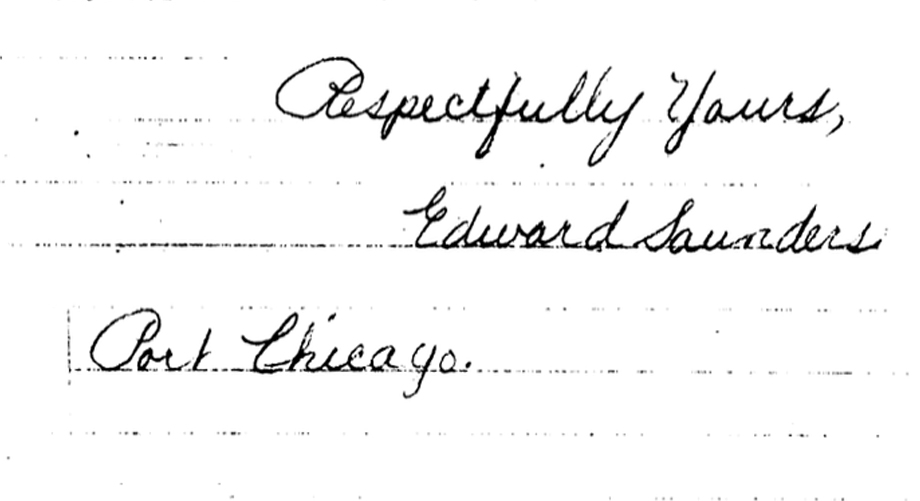 Respectfully Yours,
Edward Saunders
Port Chicago.